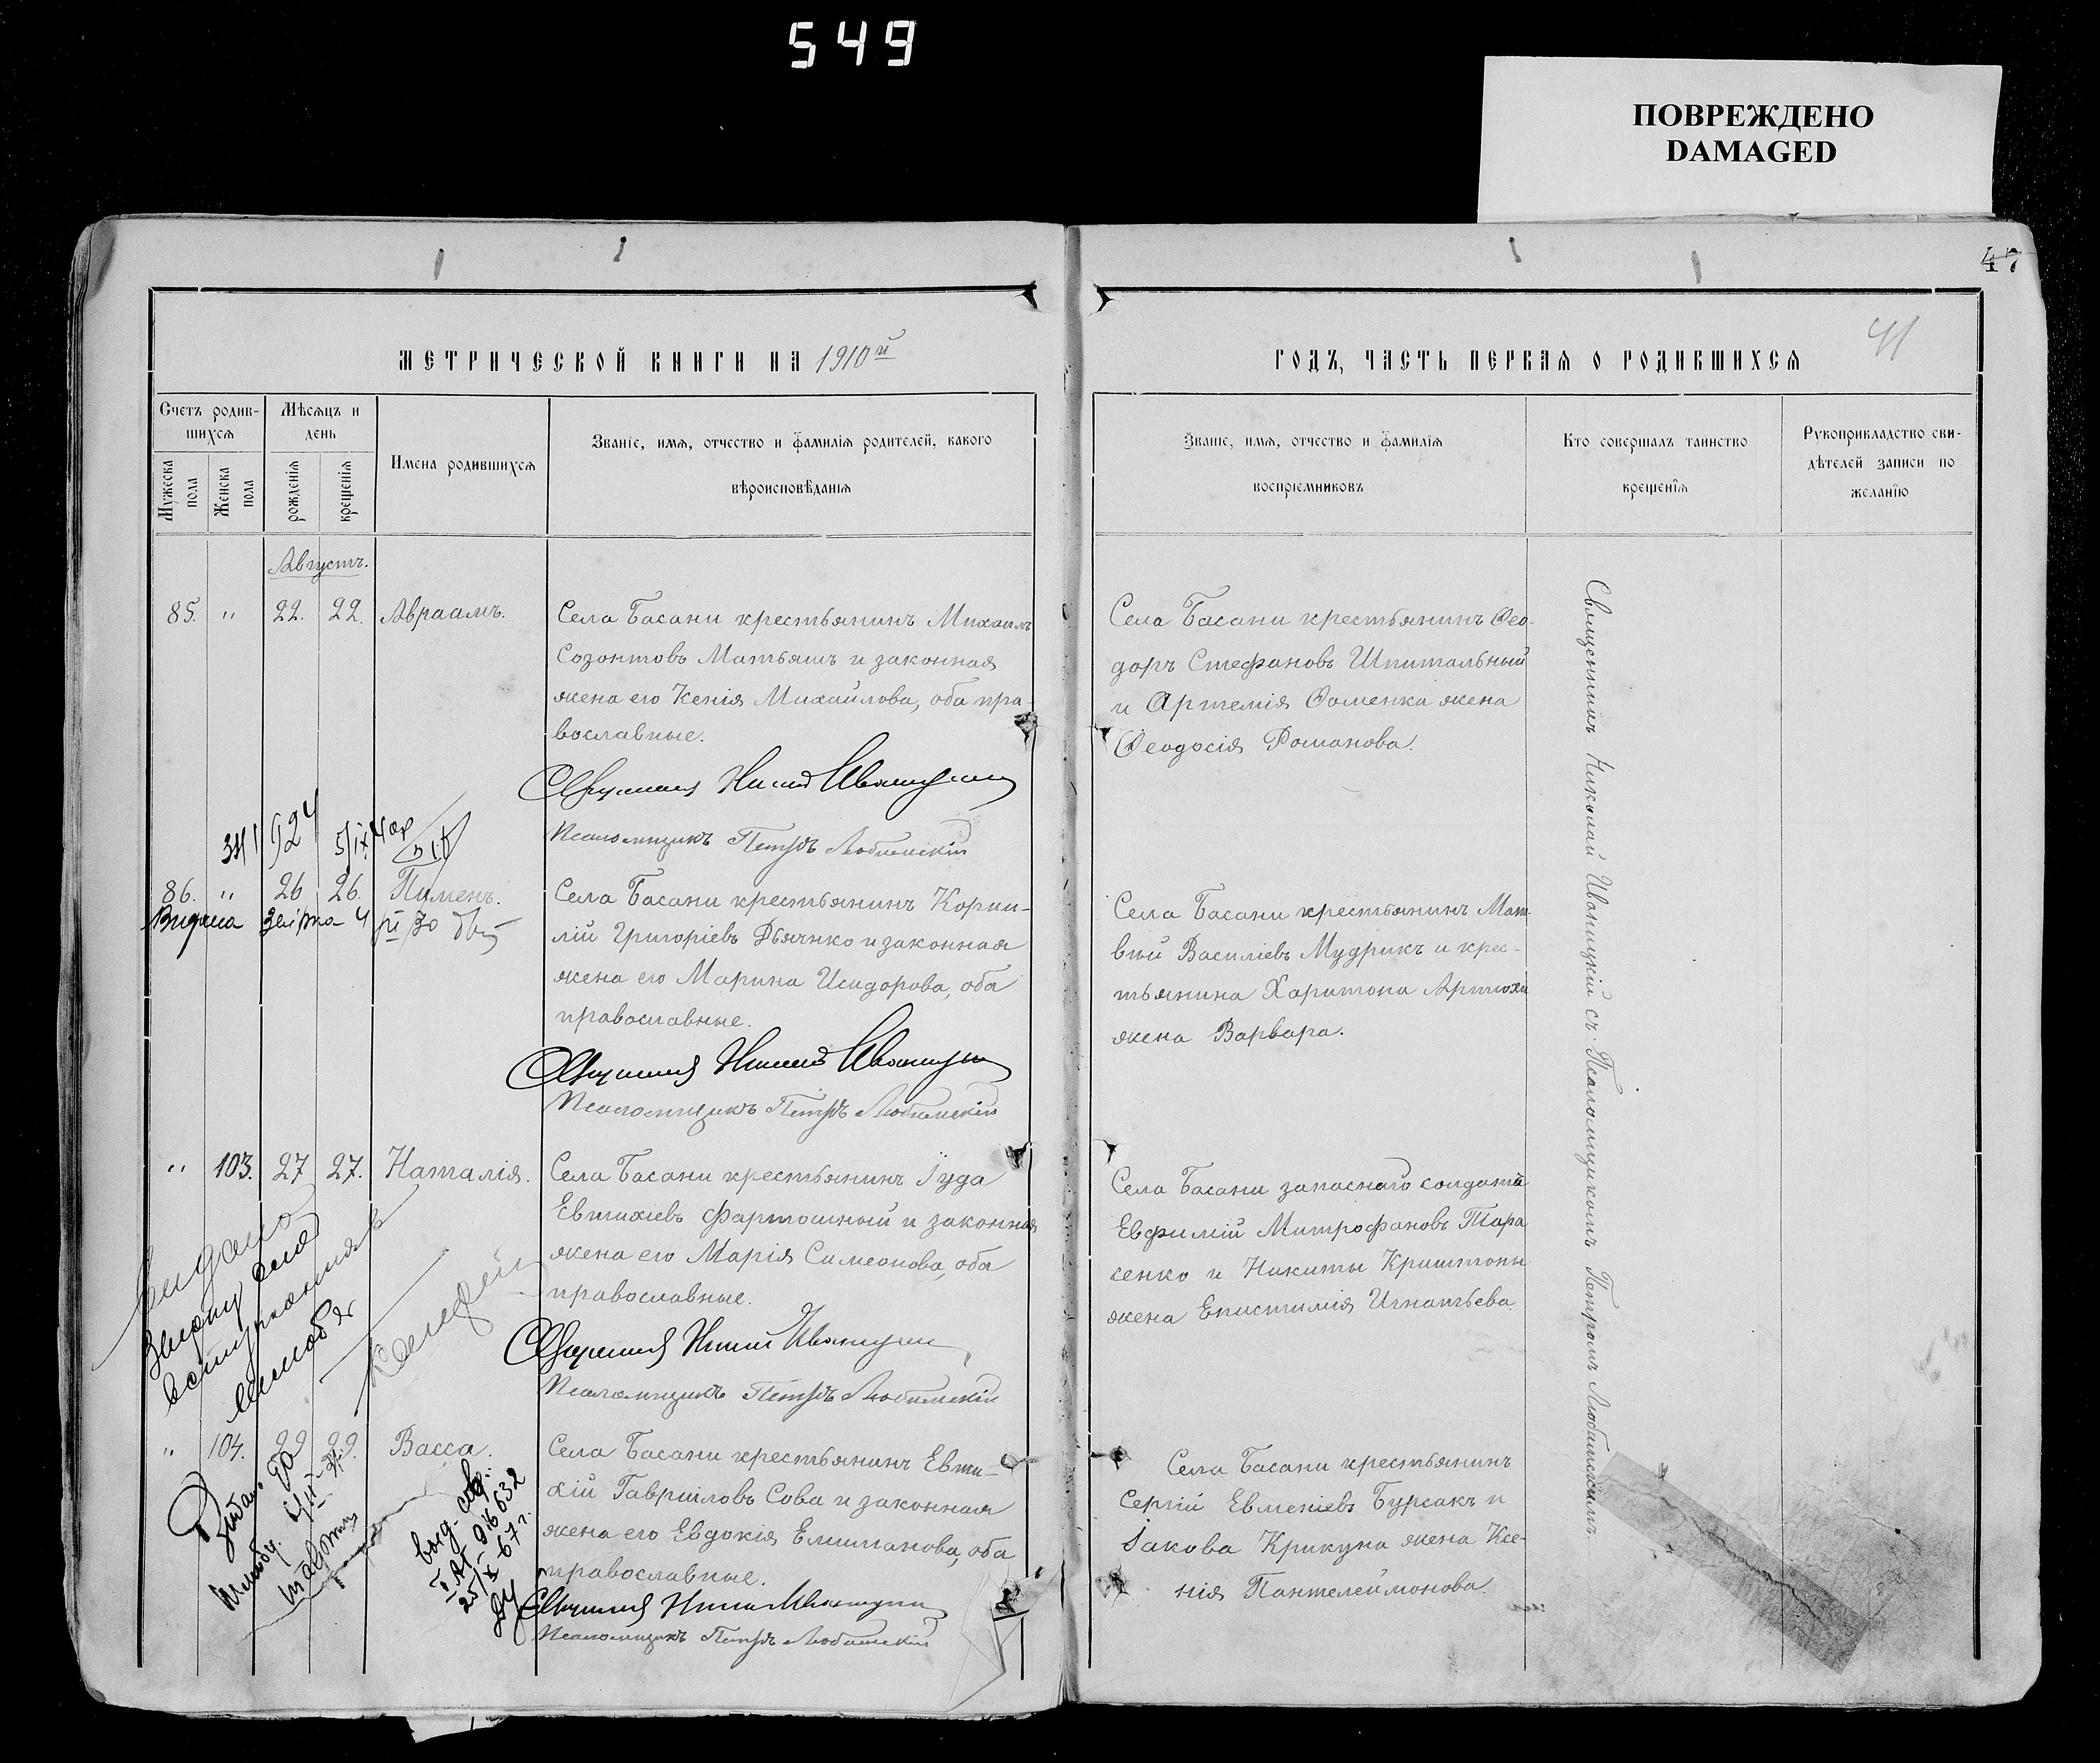 549
ПОВРЕЖДЕНО
DAMAGED
47
41
МЕТРИЧЕСКОЙ КНИГИ НА 1910й
ГОДЪ, ЧАСТЬ ПЕРВАЯ О РОДИВШИХСЯ
Счетъ родив-
шихся
Мужеска
пола
Женска
пола
Мѣсяцъ и
день
рожденія
крещенія
Имена родившихся
Званіе, имя, отчество и фамилія родителей, какого
вѣроисповѣданія
Званіе, имя, отчество и фамилія
воспріемниковъ
Кто совершалъ таинство
крещенія
Рукоприкладство сви-
дѣтелей записи по
желанію
Августъ.
85. " 22. 22. Авраамъ.
Села Басани крестьянинъ Михаилъ
Созонтовъ Матьяшъ и законная
жена его Ксенія Михайлова, оба пра-
вославные.
Священникъ Николай Иваницкій
Псаломщикъ Петръ Любимскій
Села Басани крестьянинъ Ѳео-
доръ Стефановъ Шпитальный
и Артемія Ѳоменка жена
Ѳеодосія Романова.
924
86. " 26 26. Пименъ.
Видана
Села Басани крестьянинъ Корни-
лій Григоріевъ Дьячнко и законная
жена его Марина Исидорова, оба
православные.
Священникъ Николай Иваницкій
Псаломщикъ Петръ Любимскій
Села Басани крестьянинъ Мат-
вѣй Василіевъ Мудрикъ и крес-
тьянина Харитона Артюхи
жена Варвара.
" 103. 27 27. Наталія.
Села Басани крестьянинъ Іуда
Евтихіевъ Фартошный и законная
жена его Марія Симеонова, оба
православные.
Священникъ Николай Иваницкій
Псаломщикъ Петръ Любимскій
Села Басани запаснаго солдата
Евфимій Митрофановъ Тара
сенко и Никиты Криштопы
жена Епистимія Игнатьева
" 104. 29 29. Васса.
Села Басани крестьянинъ Евти-
хій Гавріиловъ Сова и законная
жена его Евдокія Емиліанова, оба
православные.
Священникъ Николай Иваницкій
Псаломщикъ Петръ Любимскій
Села Басани крестьянинъ
Сергій Евменіевъ Бурсакъ и
Іакова Крикуна жена Ксе-
нія Пантелеймонова.
916632
25/X-67 г.
Священникъ Николай Иваницкій съ Псаломщикомъ Петромъ Любимскимъ